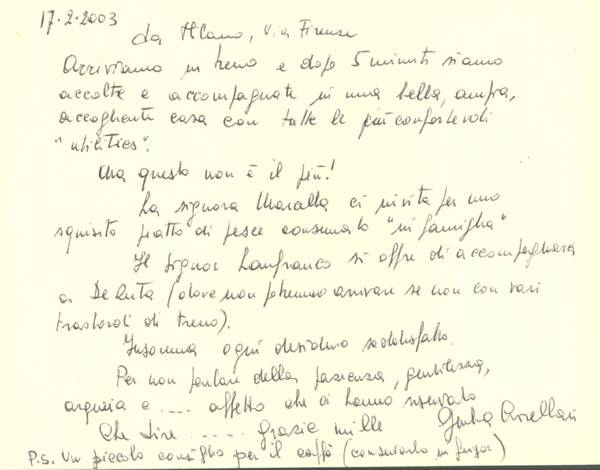 17.2.2003
da Milano, via Firenze
Arriviamo in treno e dopo 5 minuti siamo
accolte e accompagnate in una bella, ampia,
accogliente casa con tutte le più confortevoli
"utilities".
Ma questo non è il più!
La signora Maralla ci invita per uno
squisito piatto di pesce consumato "in famiglia"
Il signor Lanfranco si offre di accompagnarci
a Deruta (dove non potremmo arrivare se non con vari
trasbordi di treno).
Insomma ogni desiderio soddisfatto.
Per non parlare della pazienza, gentilezza,
arguzia e .... affetto che ci hanno riservato
Che dire ..... Grazie mille Giulia
P.S. Un piccolo consiglio per il caffè (conservarlo in frigor)